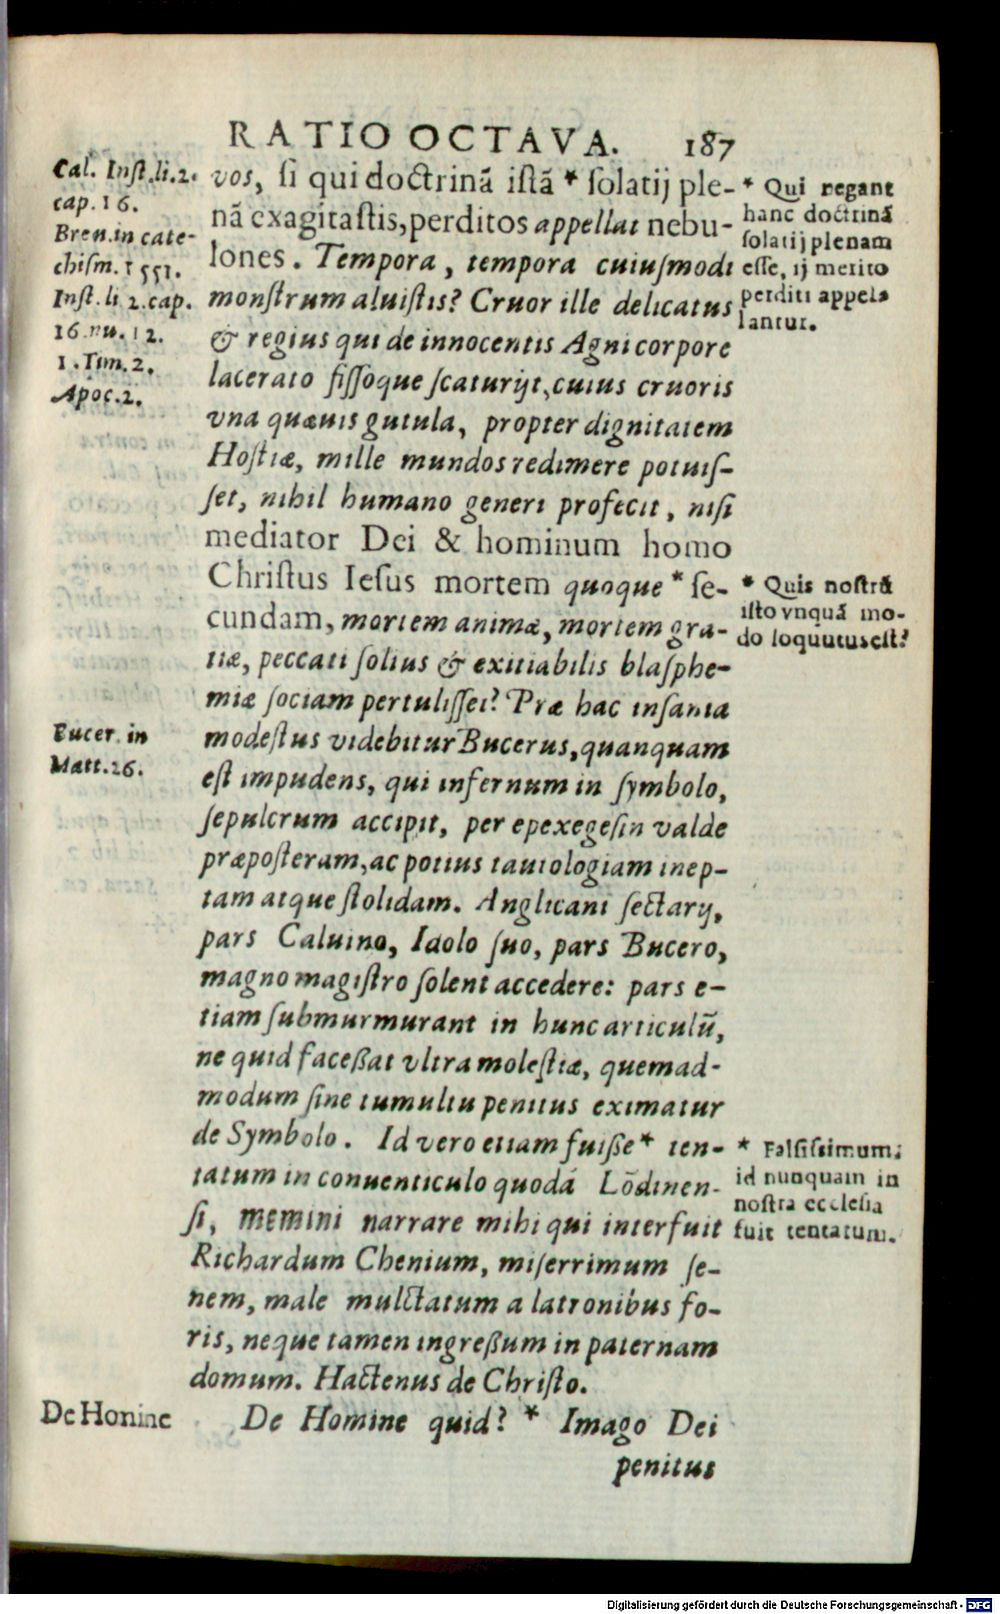 RATIO OCTAVA. 187
Cal. Inſt. li. 2.
cap. 16.
Bren. in cate-
chiſm. 1551.
Inſt. li 2. cap.
16. nu. 12.
1. Tim. 2.
Apoc. 2.
vos, ſi qui doctrinã iſtã * ſolatij ple-
nã exagitaſtis, perditos appellat nebu-
lones. Tempora, tempora cuiuſmodi
monſtrum aluiſtis? Cruor ille delicatus
& regius qui de innocentis Agni corpore
lacerato fiſſoque ſcaturijt, cuius cruoris
vna quæuis gutula, propter dignitatem
Hoſtiæ, mille mundos redimere potuiſ-
ſet, nihil humano generi profecit, niſi
mediator Dei & hominum homo
Chriſtus Ieſus mortem quoque * ſe-
cundam, mortem animæ, mortem gra-
tiæ, peccati ſolius & exitiabilis blaſphe-
miæ ſociam pertuliſſet? Præ hac inſania
modeſtus videbitur Bucerus, quanquam
eſt impudens, qui infernum in ſymbolo,
ſepulcrum accipit, per epexegeſin valde
præpoſteram, ac potius tautologiam inep-
tam atque ſtolidam. Anglicani ſectarij,
pars Caluino, Idolo ſuo, pars Bucero,
magno magiſtro ſolent accedere: pars e-
tiam ſubmurmurant in hunc articulũ,
ne quid faceßat vltra moleſtiæ, quemad-
modum ſine tumultu penitus eximatur
de Symbolo. Id vero etiam fuiße * ten-
tatum in conuenticulo quodã Lõdinen-
ſi, memini narrare mihi qui interfuit
Richardum Chenium, miſerrimum ſe-
nem, male mulctatum a latronibus fo-
ris, neque tamen ingreßum in paternam
domum. Hactenus de Chriſto.
De Homine quid? * Imago Dei
penitus
* Qui negant
hanc doctrinã
ſolatij plenam
eſſe, ij merito
perditi appel-
lantur.
* Quis noſtrã
iſto vnquã mo-
do loquutus eſt?
Bucer. in
Matt. 26.
* Falſiſsimum;
id nunquam in
noſtra eccleſia
fuit tentatum.
De Honine
Digitalisierung gefördert durch die Deutsche Forschungsgemeinschaft - DFG